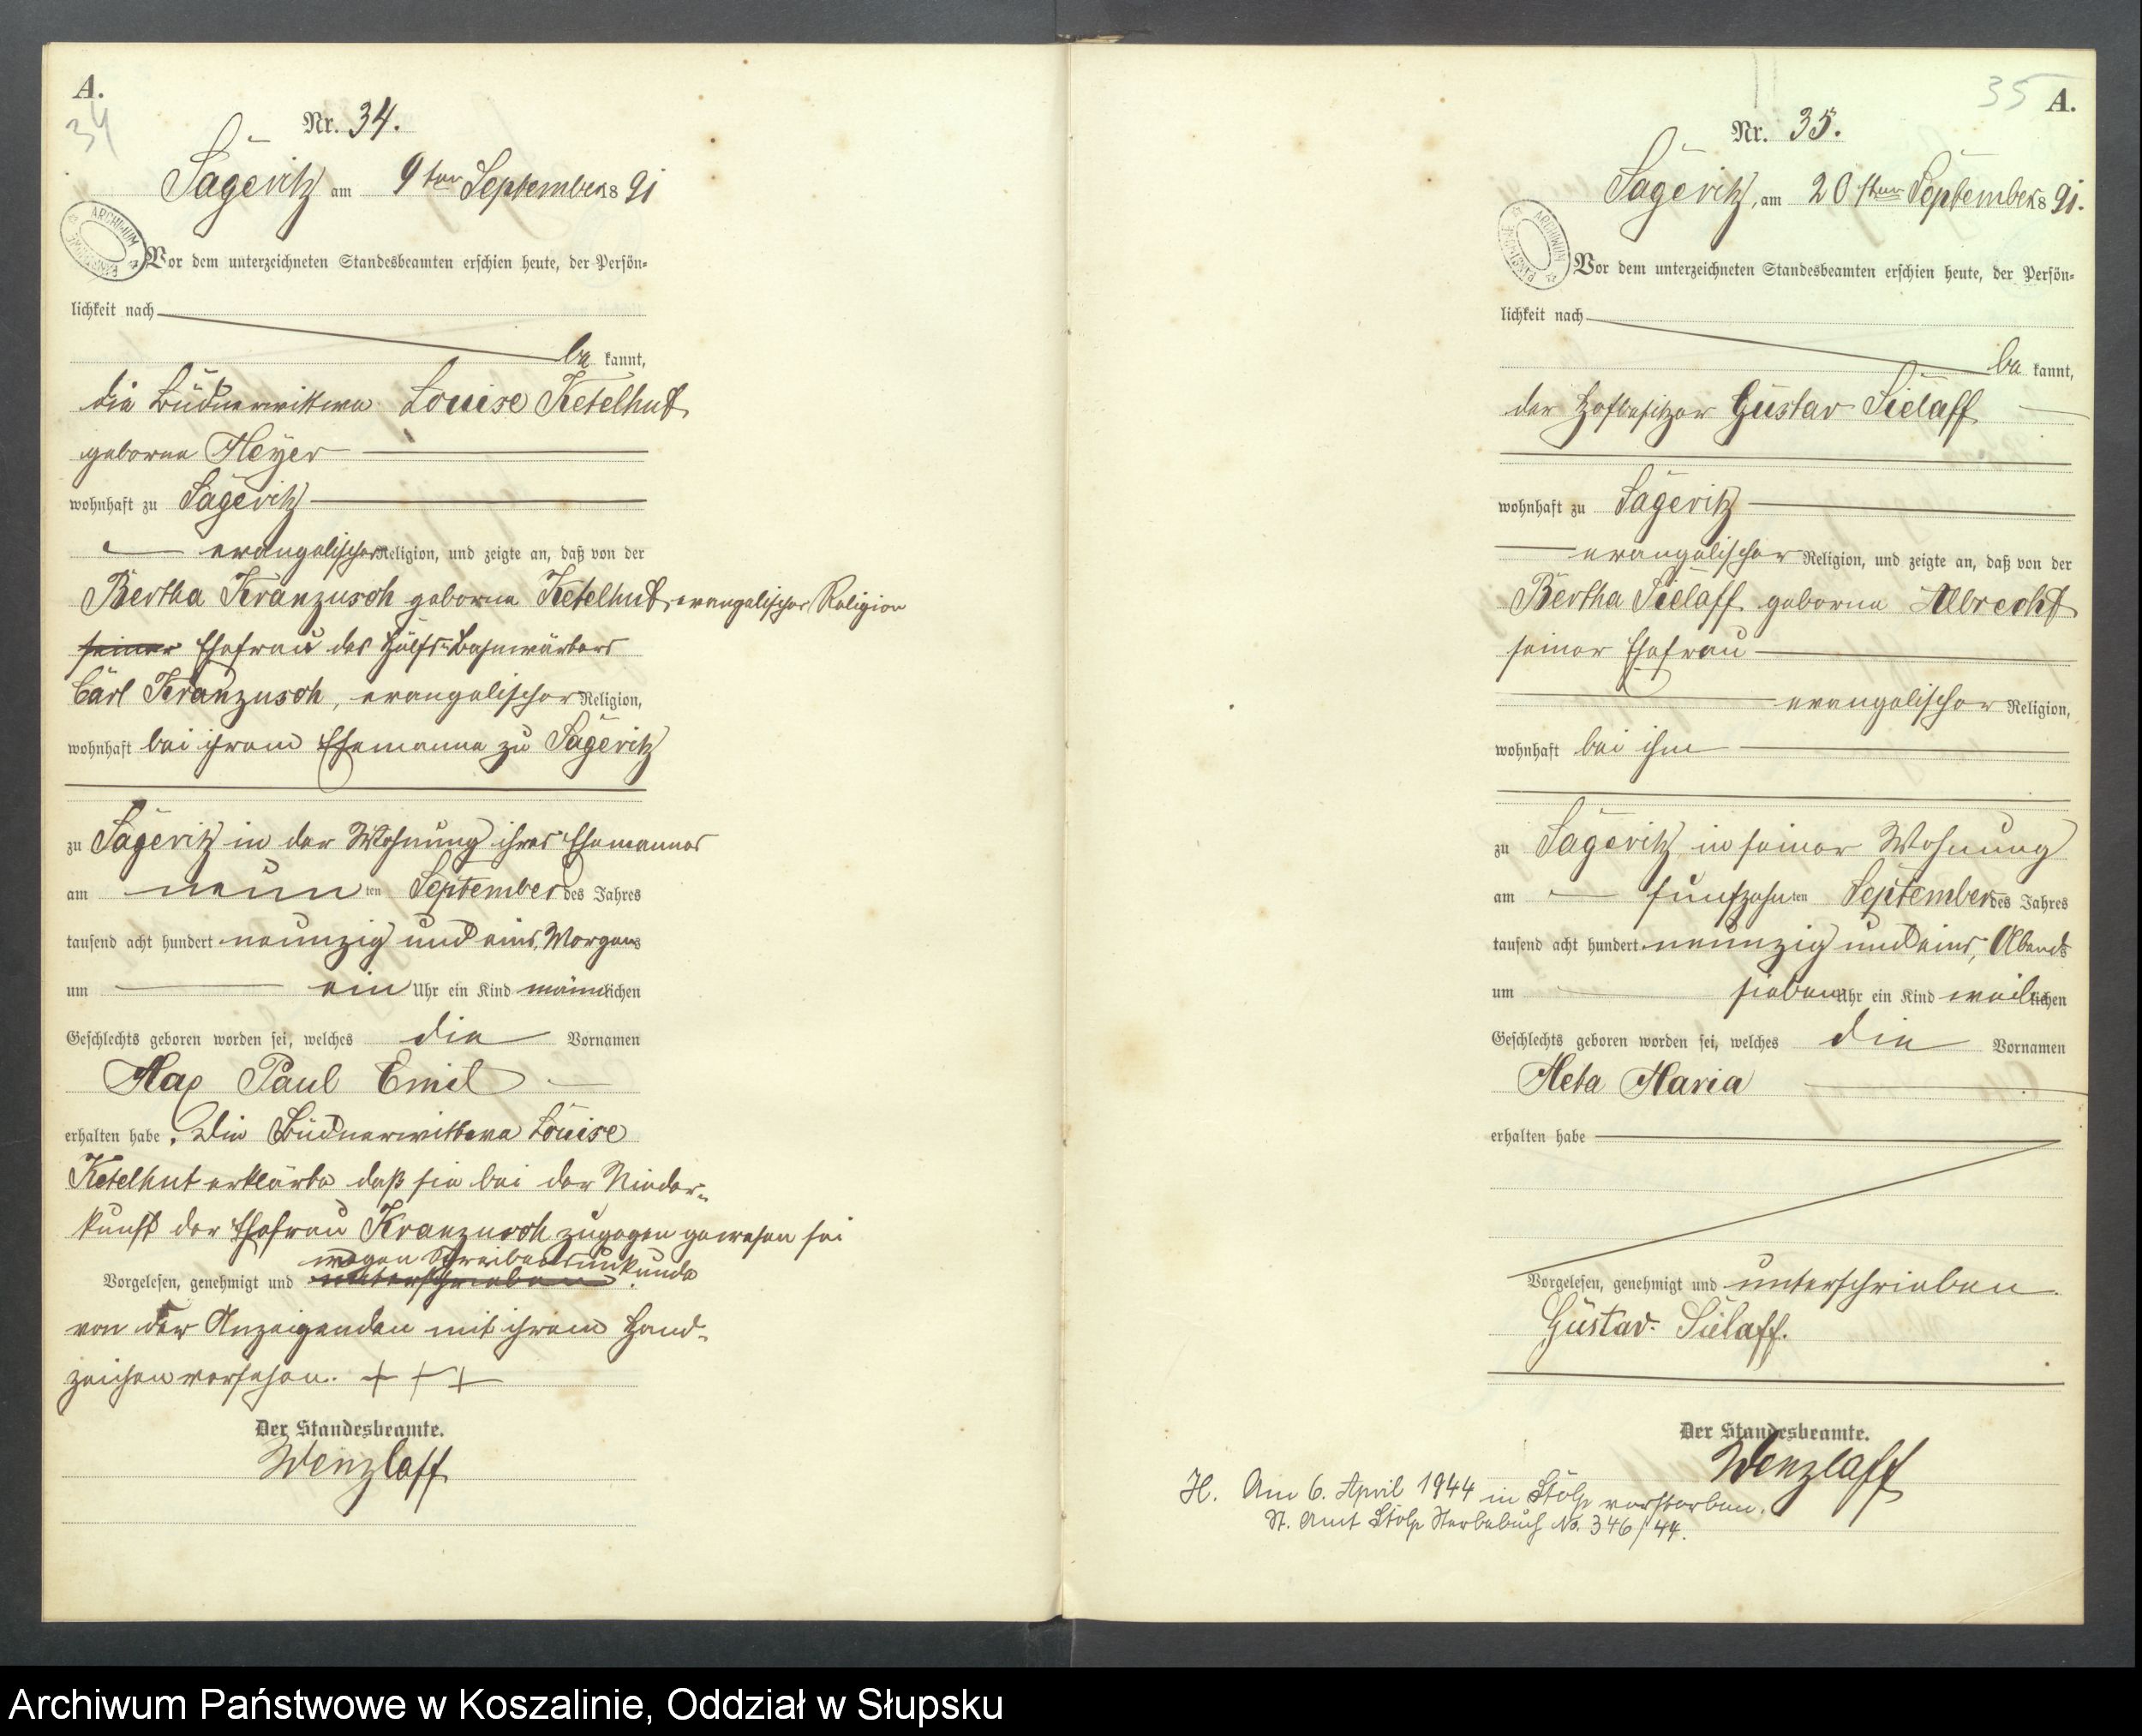 A.
34
Nr. 34.
Sageritz am 9ten September 1891
ARCHIWUM PAŃSTWOWE
Vor dem unterzeichneten Standesbeamten erschien heute, der Persön-
lichkeit nach
be kannt,
die Büdnerwittwe Louise Ketelhut
geborne Meyer
wohnhaft zu Sageritz
evangelischer Religion, und zeigte an, daß von der
Bertha Kranzusch geborne Ketelhut, evangelischer Religion
seiner Ehefrau des Hülfs-Bahnwärters
Carl Kranzusch, evangelischer Religion,
wohnhaft bei ihrem Ehemanne zu Sageritz
zu Sageritz in der Wohnung ihres Ehemannes
am neun ten September des Jahres
tausend acht hundert neunzig und eins, Morgens
um ein Uhr ein Kind männlichen
Geschlechts geboren worden sei, welches die Vornamen
Max Paul Emil
erhalten habe. Die Büdnerwittwe Louise
Ketelhut erklärte daß sie bei der Nieder-
kunft der Ehefrau Kranzusch zugegen gewesen sei
wegen Schreibensunkunde
Vorgelesen, genehmigt und unterschrieben
von der Anzeigenden mit ihrem Hand-
zeichen versehen. + + +
Der Standesbeamte.
Wenzlaff
35 A.
Nr. 35.
Sageritz, am 20sten September 1891.
ARCHIWUM PAŃSTWOWE
Vor dem unterzeichneten Standesbeamten erschien heute, der Persön-
lichkeit nach
be kannt,
der Hofbesitzer Gustav Sielaff
wohnhaft zu Sageritz
evangelischer Religion, und zeigte an, daß von der
Bertha Sielaff geborne Albrecht
seiner Ehefrau
evangelischer Religion,
wohnhaft bei ihm
zu Sageritz in seiner Wohnung
am fünfzehn ten September des Jahres
tausend acht hundert neunzig und eins, Abends
um sieben Uhr ein Kind weiblichen
Geschlechts geboren worden sei, welches die Vornamen
Meta Maria
erhalten habe
Vorgelesen, genehmigt und unterschrieben.
Gustav Sielaff.
Der Standesbeamte.
Wenzlaff
H. Am 6. April 1944 in Stolp verstorben.
St. Amt Stolp Sterbebuch No. 346/44.
Archiwum Państwowe w Koszalinie, Oddział w Słupsku